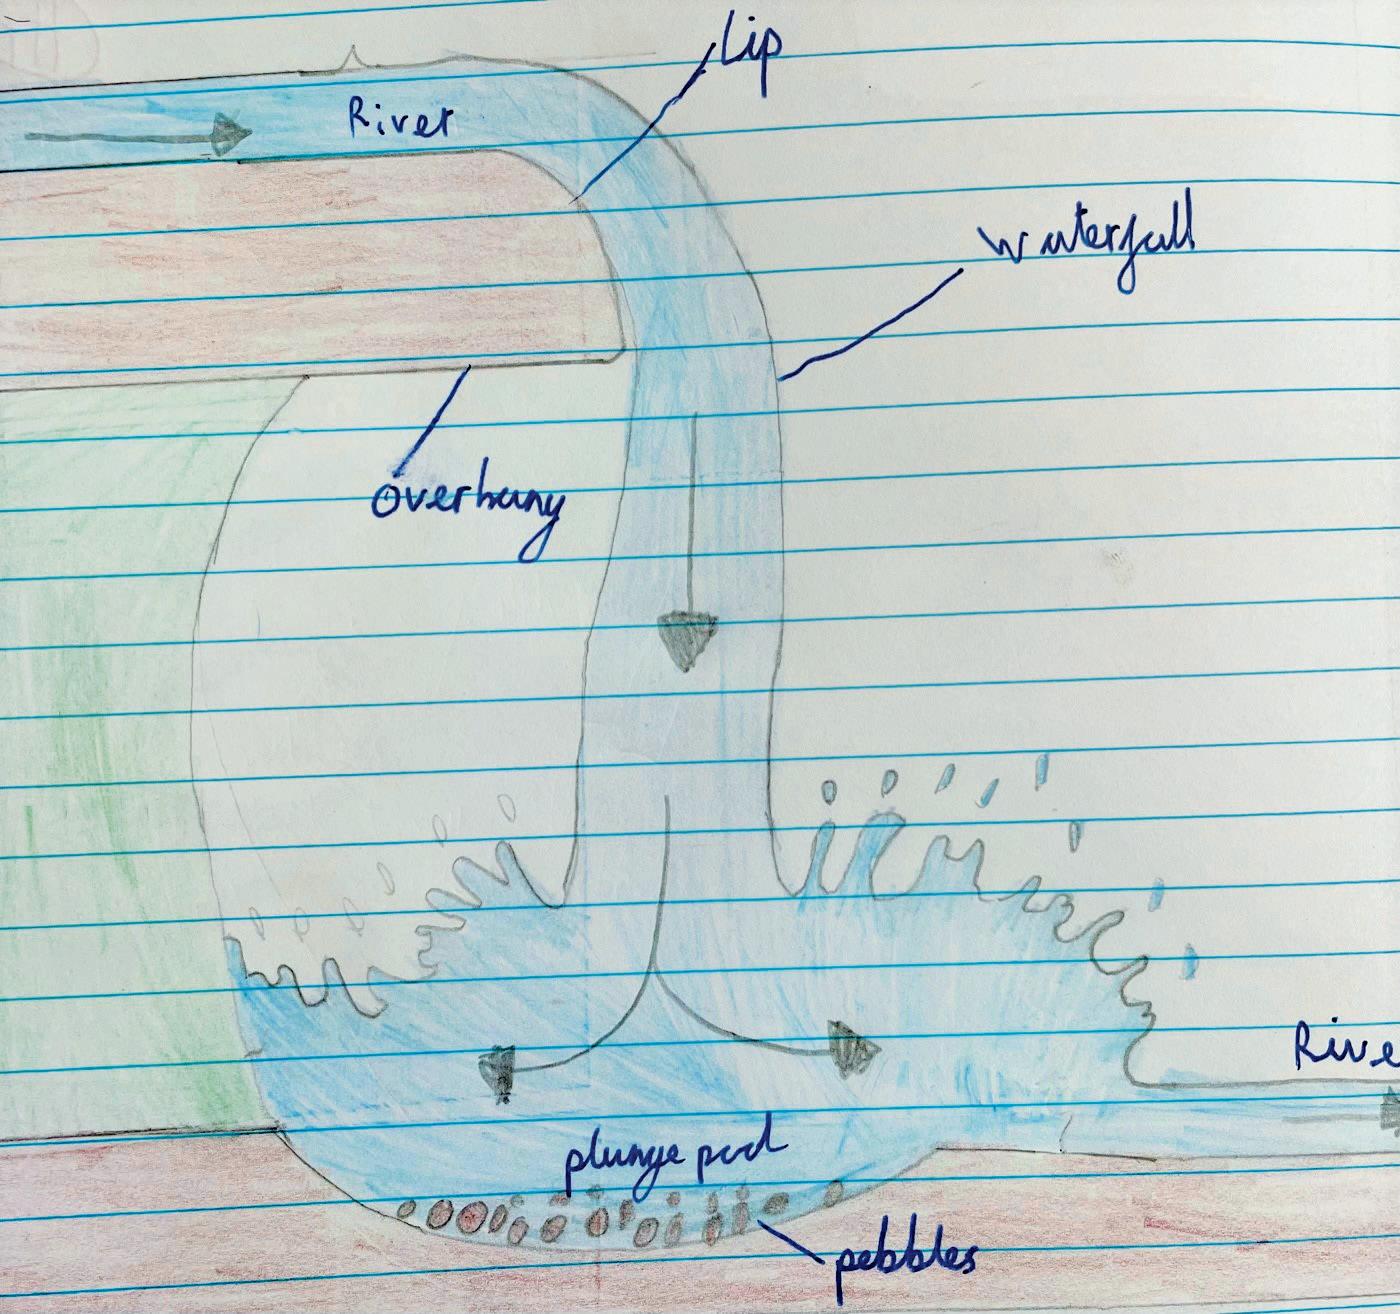 Lip
River
Waterfall
Overhang
Rive
plunge pool
pebbles